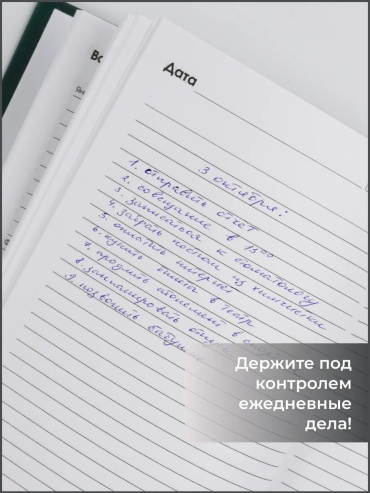 Дата
3 октября:
1. отправить отчёт
2. совещание в 13:00
3. записаться к стоматологу
4. забрать костюм из химчистки
5. оплатить интернет
6. купить билеты в театр
7. продлить абонемент в
8. запланировать
9. позвонить бабушке
Держите под
контролем
ежедневные
дела!